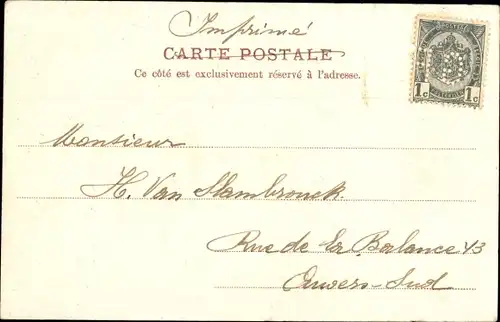 Imprimé
CARTE POSTALE
Ce côté est exclusivement réservé à l'adresse.
1c 1c
Monsieur
H. Van Stambrouck.
Rue de la Balance 43
Anvers-Sud